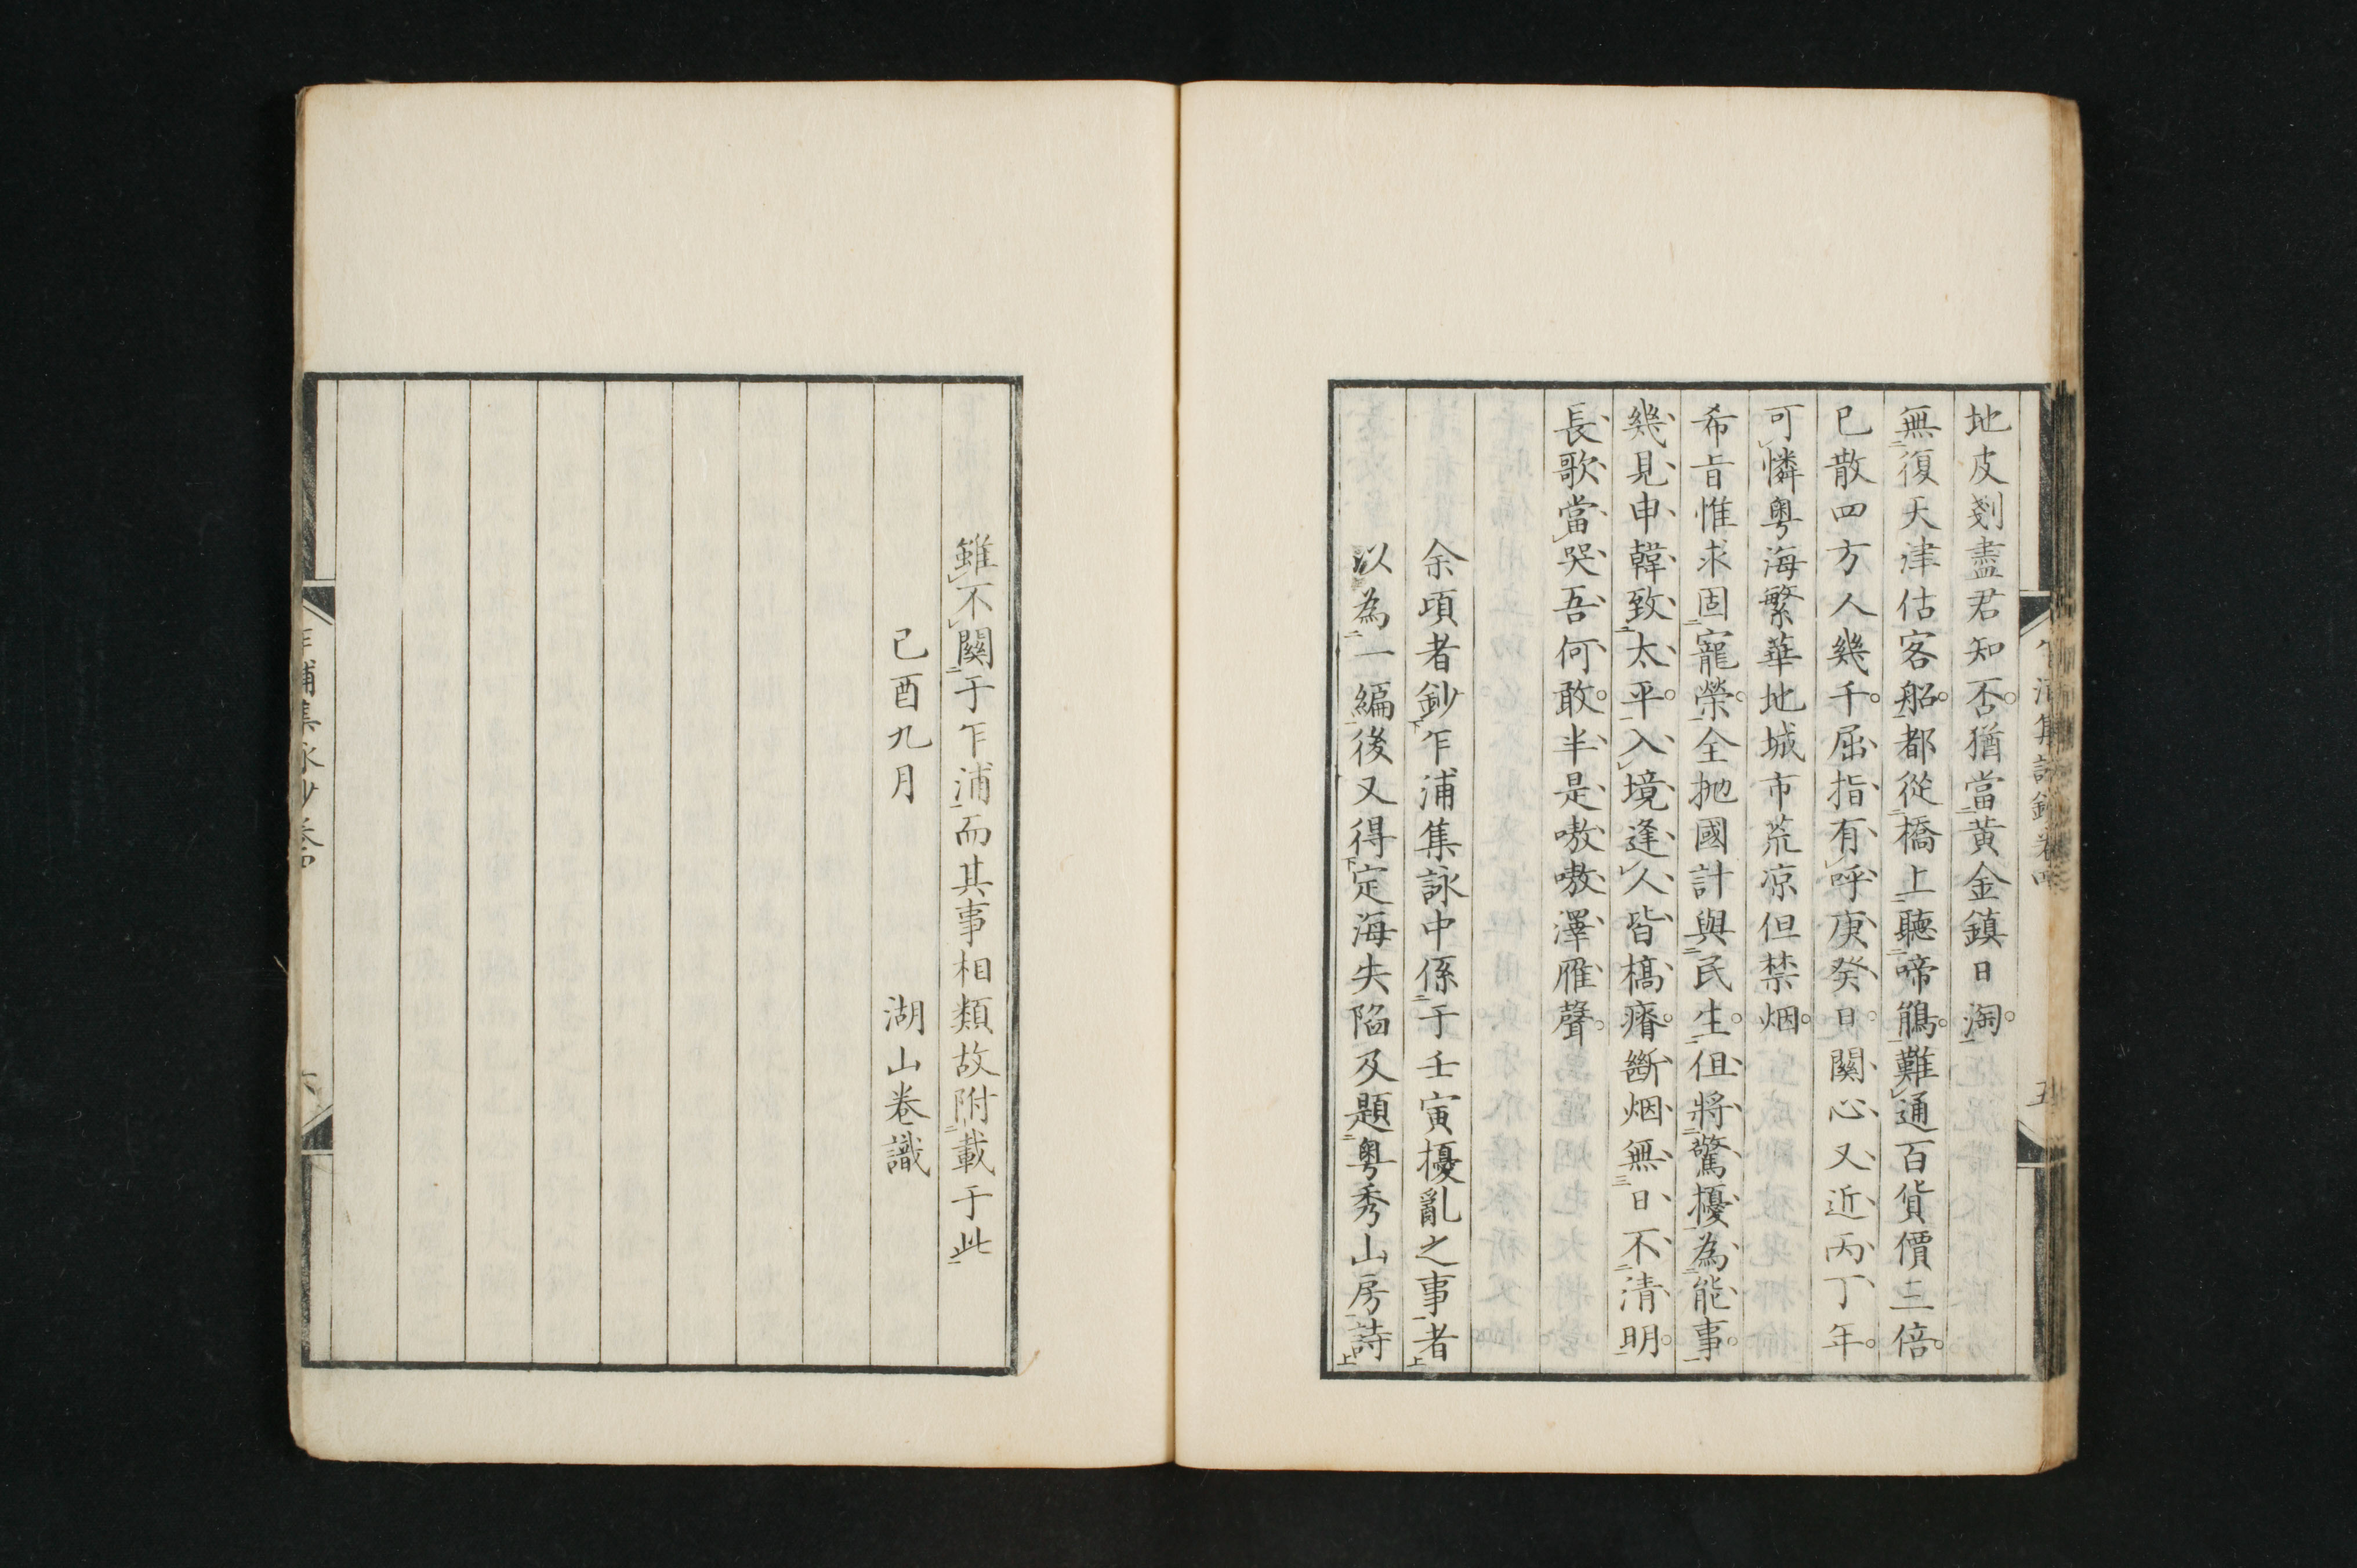 地皮剗盡君知否猶當黄金鎮日淘
無復天津估客船都從橋上聽啼鵑難通百貨價三倍
已散四方人幾千屈指有呼庚癸日關心又近丙丁年
可憐粤海繁華地城市荒凉但禁烟
希旨惟求固寵榮全抛國計與民生但將驚擾為能事
幾見申韓致太平入境逢人皆槁瘠斷烟無日不清明
長歌當哭吾何敢半是嗷嗷澤雁聲
余頃者鈔乍浦集詠中係于壬寅擾亂之事者
以為一編後又得定海失陷及題粤秀山房詩
雖不關于乍浦而其事相類故附載于此
己酉九月 湖山卷識
乍浦集詠鈔卷四
五